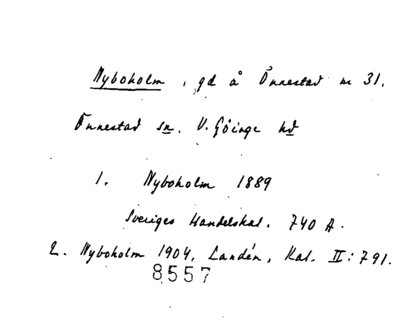 Nyboholm, gd å Önnestad nr 31.
Önnestad sn. V. Göinge hd
1. Nyboholm 1889
Sveriges Handelskal. 740 A.
2. Nyboholm 1904, Landén, Kat. II: 791.
8557